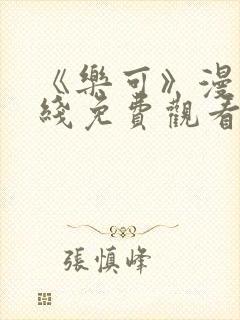 《樂可》漫
綫免費觀看
張慎峰